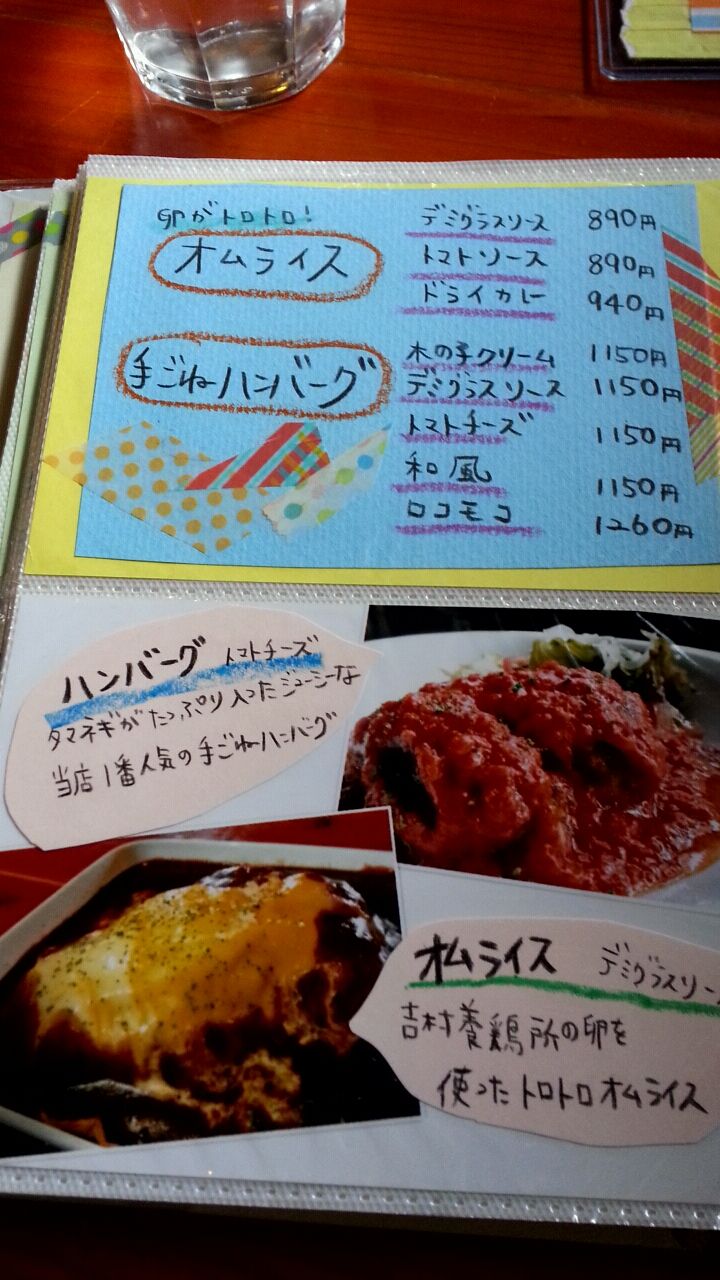 卵がトロトロ!
オムライス
デミグラスソース 890円
トマトソース 890円
ドライカレー 940円
手ごねハンバーグ
木の子クリーム 1150円
デミグラスソース 1150円
トマトチーズ 1150円
和風 1150円
ロコモコ 1260円
ハンバーグ トマトチーズ
タマネギがたっぷり入ったジューシーな
当店1番人気の手ごねハンバーグ
オムライス デミグラスソー
吉村養鶏所の卵を
使ったトロトロオムライス